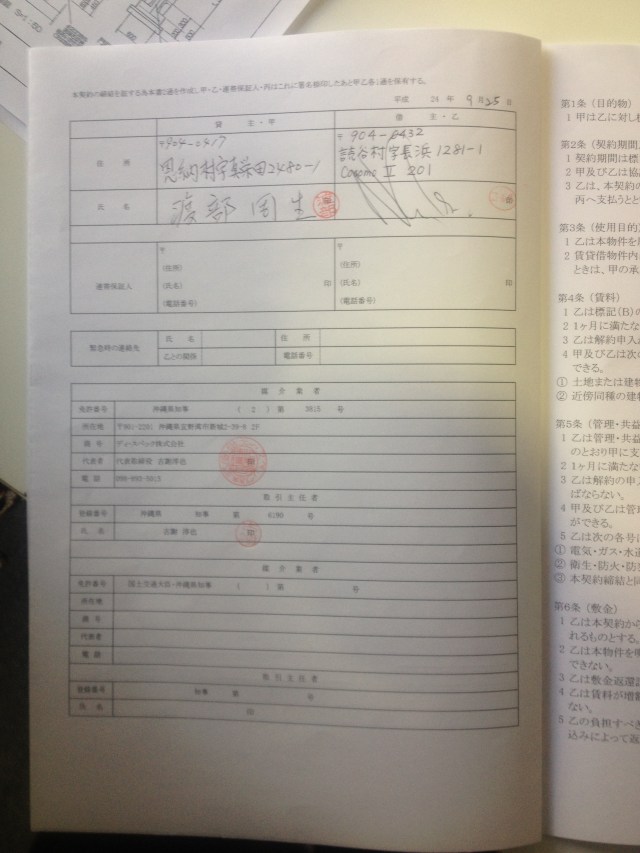 本契約の締結を証する為本書2通を作成し、甲・乙・連帯保証人・丙はこれに署名捺印したあと甲乙各1通を保有する。
平成 24 年 9 月 25 日
貸主・甲 借主・乙
住所 〒904-0417 〒904-0432
恩納村字真栄田2480-1 読谷村字長浜 1281-1
Cosmo II 201
氏名 渡部 周生 印
連帯保証人 〒 〒
(住所) (住所)
(氏名) 印 (氏名) 印
(電話番号) (電話番号)
緊急時の連絡先 氏名 住所
乙との関係 電話番号
媒介業者
免許番号 沖縄県知事 ( 2 ) 第 3815 号
所在地 〒901-2201 沖縄県宜野湾市新城2-39-8 2F
商号 ディールバック株式会社
代表者 代表取締役 印
電話
取引主任者
登録番号 沖縄県 知事 第 号
氏名 印
媒介業者
免許番号 国土交通大臣・沖縄県知事 ( ) 第 号
所在地
商号
代表者
電話
取引主任者
登録番号 知事 第 号
氏名 印
第1条 (目的物)
1 甲は乙に対し
第2条 (契約期間
1 契約期間は標
2 甲及び乙は協
3 乙は、本契約の
丙へ支払うと
第3条 (使用目的)
1 乙は本物件を
2 賃貸借物件内
ときは、甲の承
第4条 (賃料)
1 乙は標記(B)の
2 1ヶ月に満たな
3 乙は解約申入
4 甲及び乙は次の
できる。
① 土地または建物
② 近傍同種の建物
第5条 (管理・共益
1 乙は管理・共益
のとおり甲に支
2 1ヶ月に満たな
3 乙は解約の申入
ばならない。
4 甲及び乙は管理
ができる。
5 乙は次の各号に
① 電気・ガス・水道
② 衛生・防火・防
③ 本契約締結と同
第6条 (敷金)
1 乙は本契約から
れるものとする。
2 乙は本物件を明
できない。
3 乙は敷金返還
4 乙は賃料が増額
ない。
5 乙の負担すべき
込みによって返